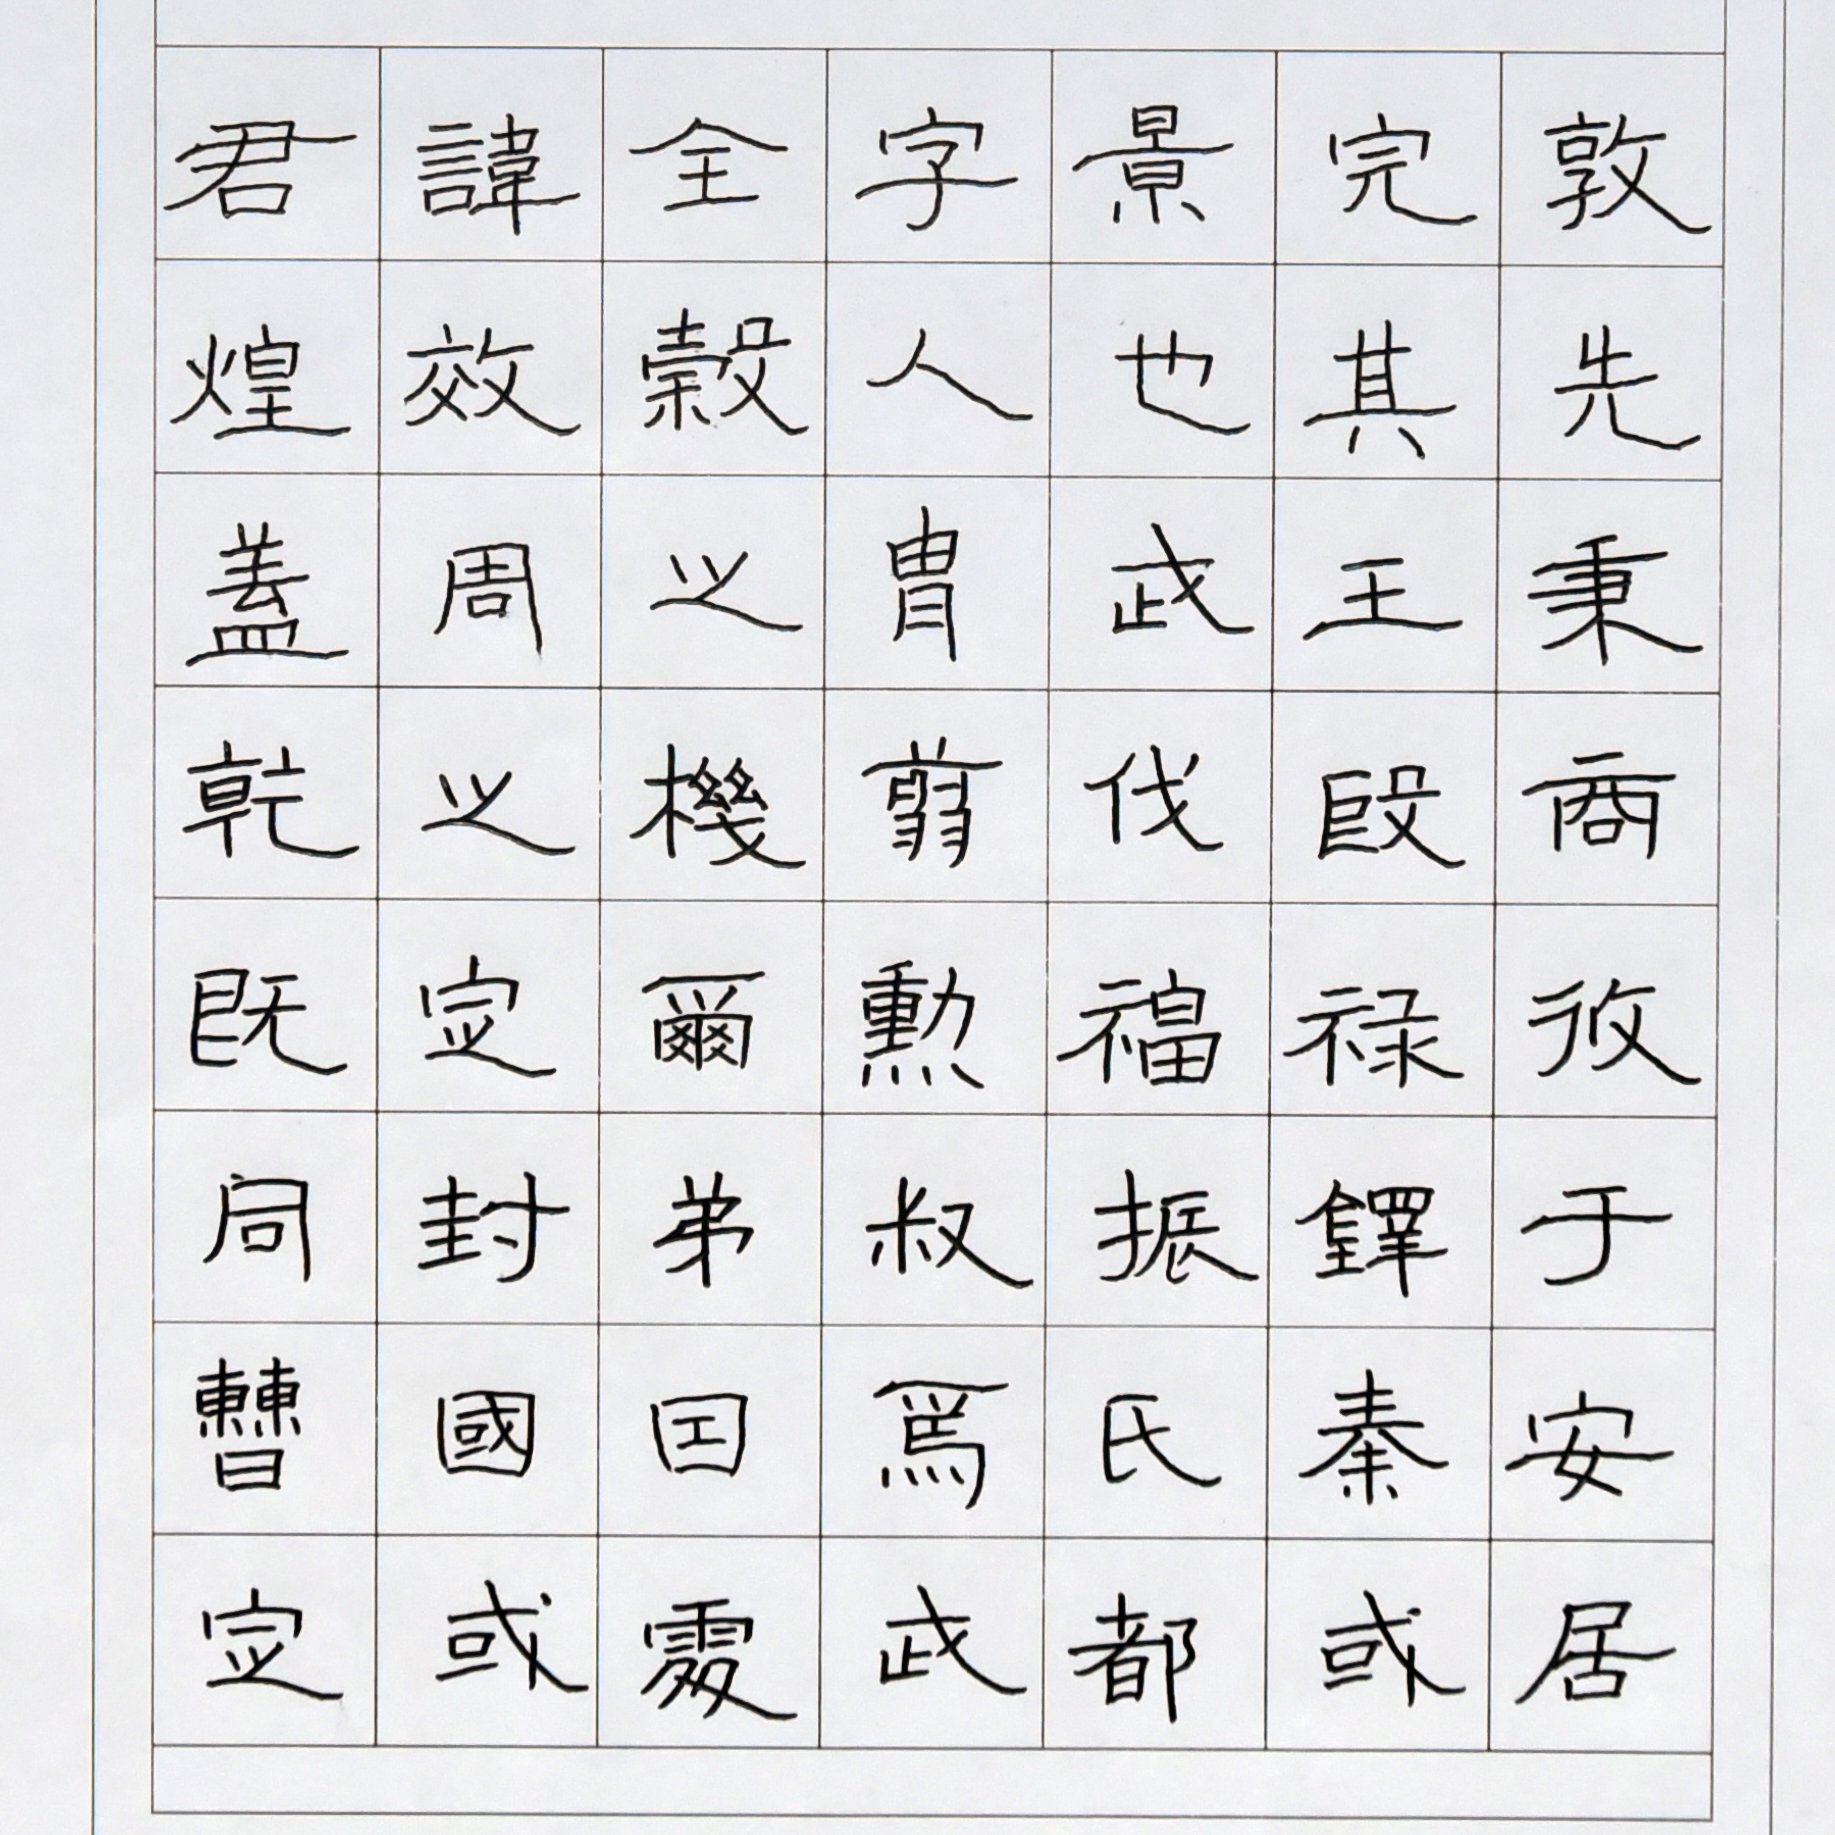 君諱全字景完敦
煌效穀人也其先
蓋周之胄武王秉
乾之機翦伐殷商
既定爾勲福祿攸
同封弟叔振鐸于
曹國因爲氏秦安
定或處武都或居